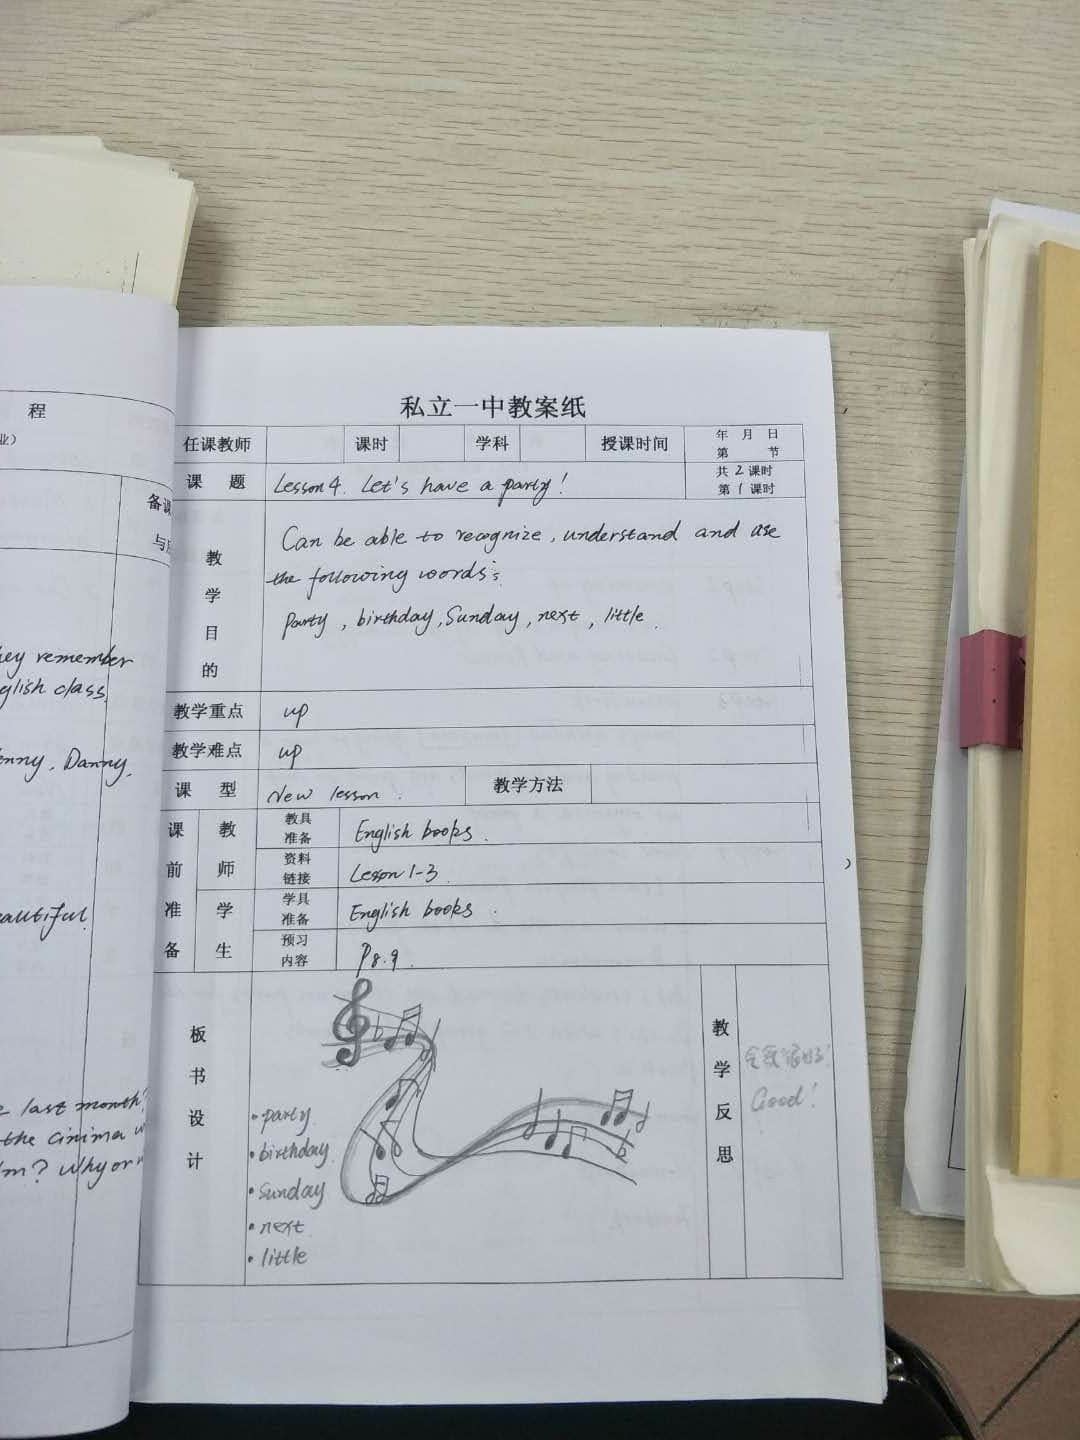 程
业）
备课
与
hey remember
glish class.
enny, Danny,
eautiful.
e last month?
the cinima w
lm? Why or n
私立一中教案纸
任课教师 课时 学科 授课时间 年 月 日
第 节
课 题 Lesson 4. Let's have a party! 共 2 课时
第 1 课时
教学目的
Can be able to recognize, understand and use
the following words:
Party, birthday, Sunday, next, little.
教学重点 up
教学难点 up
课 型 New lesson. 教学方法
课前准备
教师
教具准备 English books.
资料链接 Lesson 1-3.
学生
学具准备 English books.
预习内容 P8.9.
板书设计
• party
• birthday
• Sunday
• next
• little
教学反思
Good!